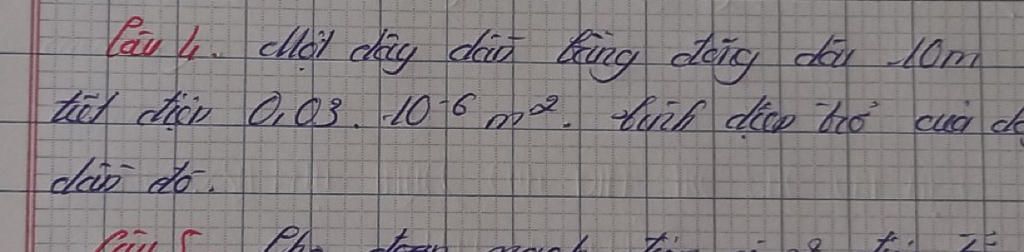 Câu 4. Một dây dẫn bằng đồng dài 10m
tiết diện 0,03. 10-6 m². tính điện trở của
dẫn đó.
Câu 5